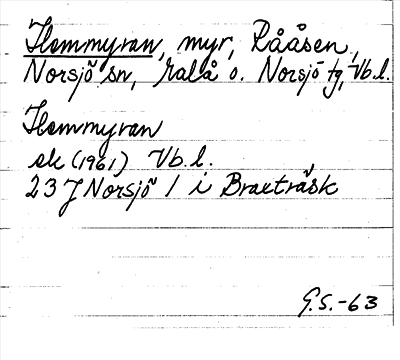 Hemmyran, myr, Rååsen,
Norsjö sn, Malå o. Norsjö tg, Vb.l.
Hemmyran
ek (1961) Vb.l.
23 J Norsjö 1 i Braxträsk
G.S.-63